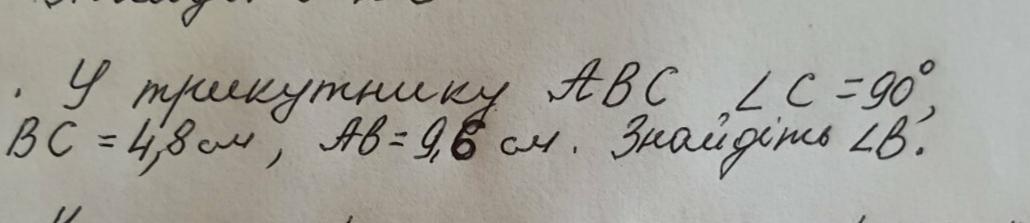 . У трикутнику ABC ∠C = 90°,
BC = 4,8 см, AB = 9,6 см. Знайдіть ∠B.